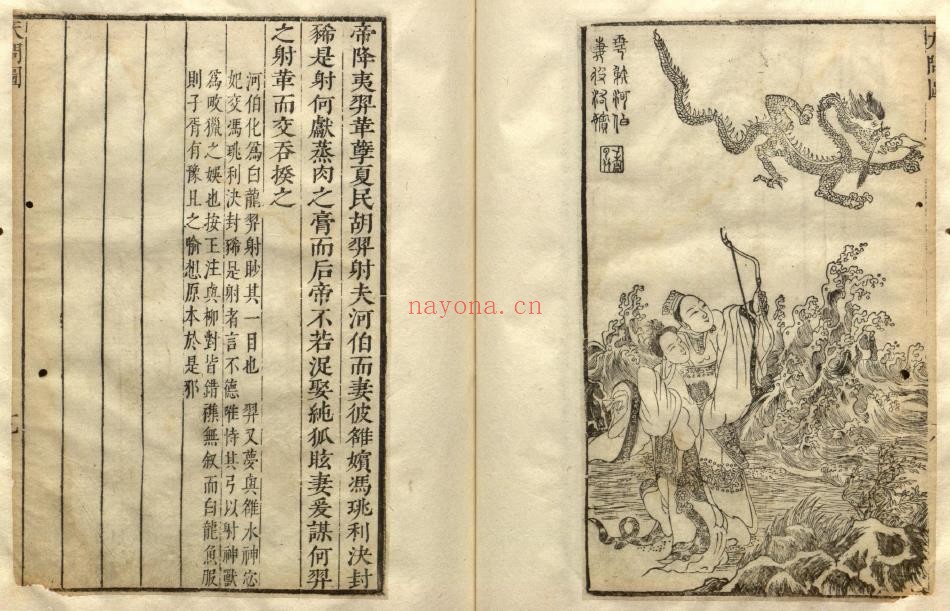 羿䠶河伯
妻彼洛嬪
帝降夷羿革孽夏民胡羿射夫河伯而妻彼雒嬪馮珧利決封
豨是射何獻蒸肉之膏而后帝不若浞娶純狐眩妻爰謀何羿
之射革而交吞揆之
河伯化爲白龍羿射眇其一目也 羿又夢與雒水神宓
妃交馮珧利決封豨是射者言不德唯恃其弓以射神獸
爲畋獵之娛也按王注與柳對皆錯襍無叙而白龍魚服
則子胥有豫且之喻想原本於是邪
天問圖
nayona.cn